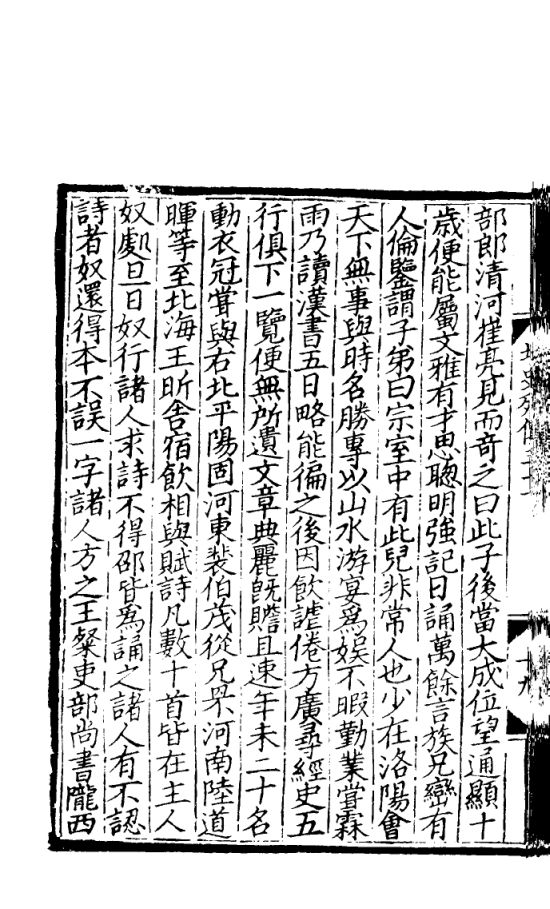 部郎清河崔亮見而奇之曰此子後當大成位望通顯十
歲便能屬文雅有才思聰明強記日誦萬餘言族兄巒有
人倫鑒謂子弟曰宗室中有此兒非常人也少在洛陽會
天下無事與時名勝專以山水游宴爲娛不暇勤業嘗霖
雨乃讀漢書五日略能徧之後因飲謔倦方廣尋經史五
行俱下一覽便無所遺文章典麗旣贍且速年未二十名
動衣冠嘗與右北平陽固河東裴伯茂從兄罘河南陸道
暉等至北海王昕舍宿飲相與賦詩凡數十首皆在主人
奴處旦日奴行諸人求詩不得邵皆爲誦之諸人有不認
詩者奴還得本不誤一字諸人方之王粲吏部尚書隴西